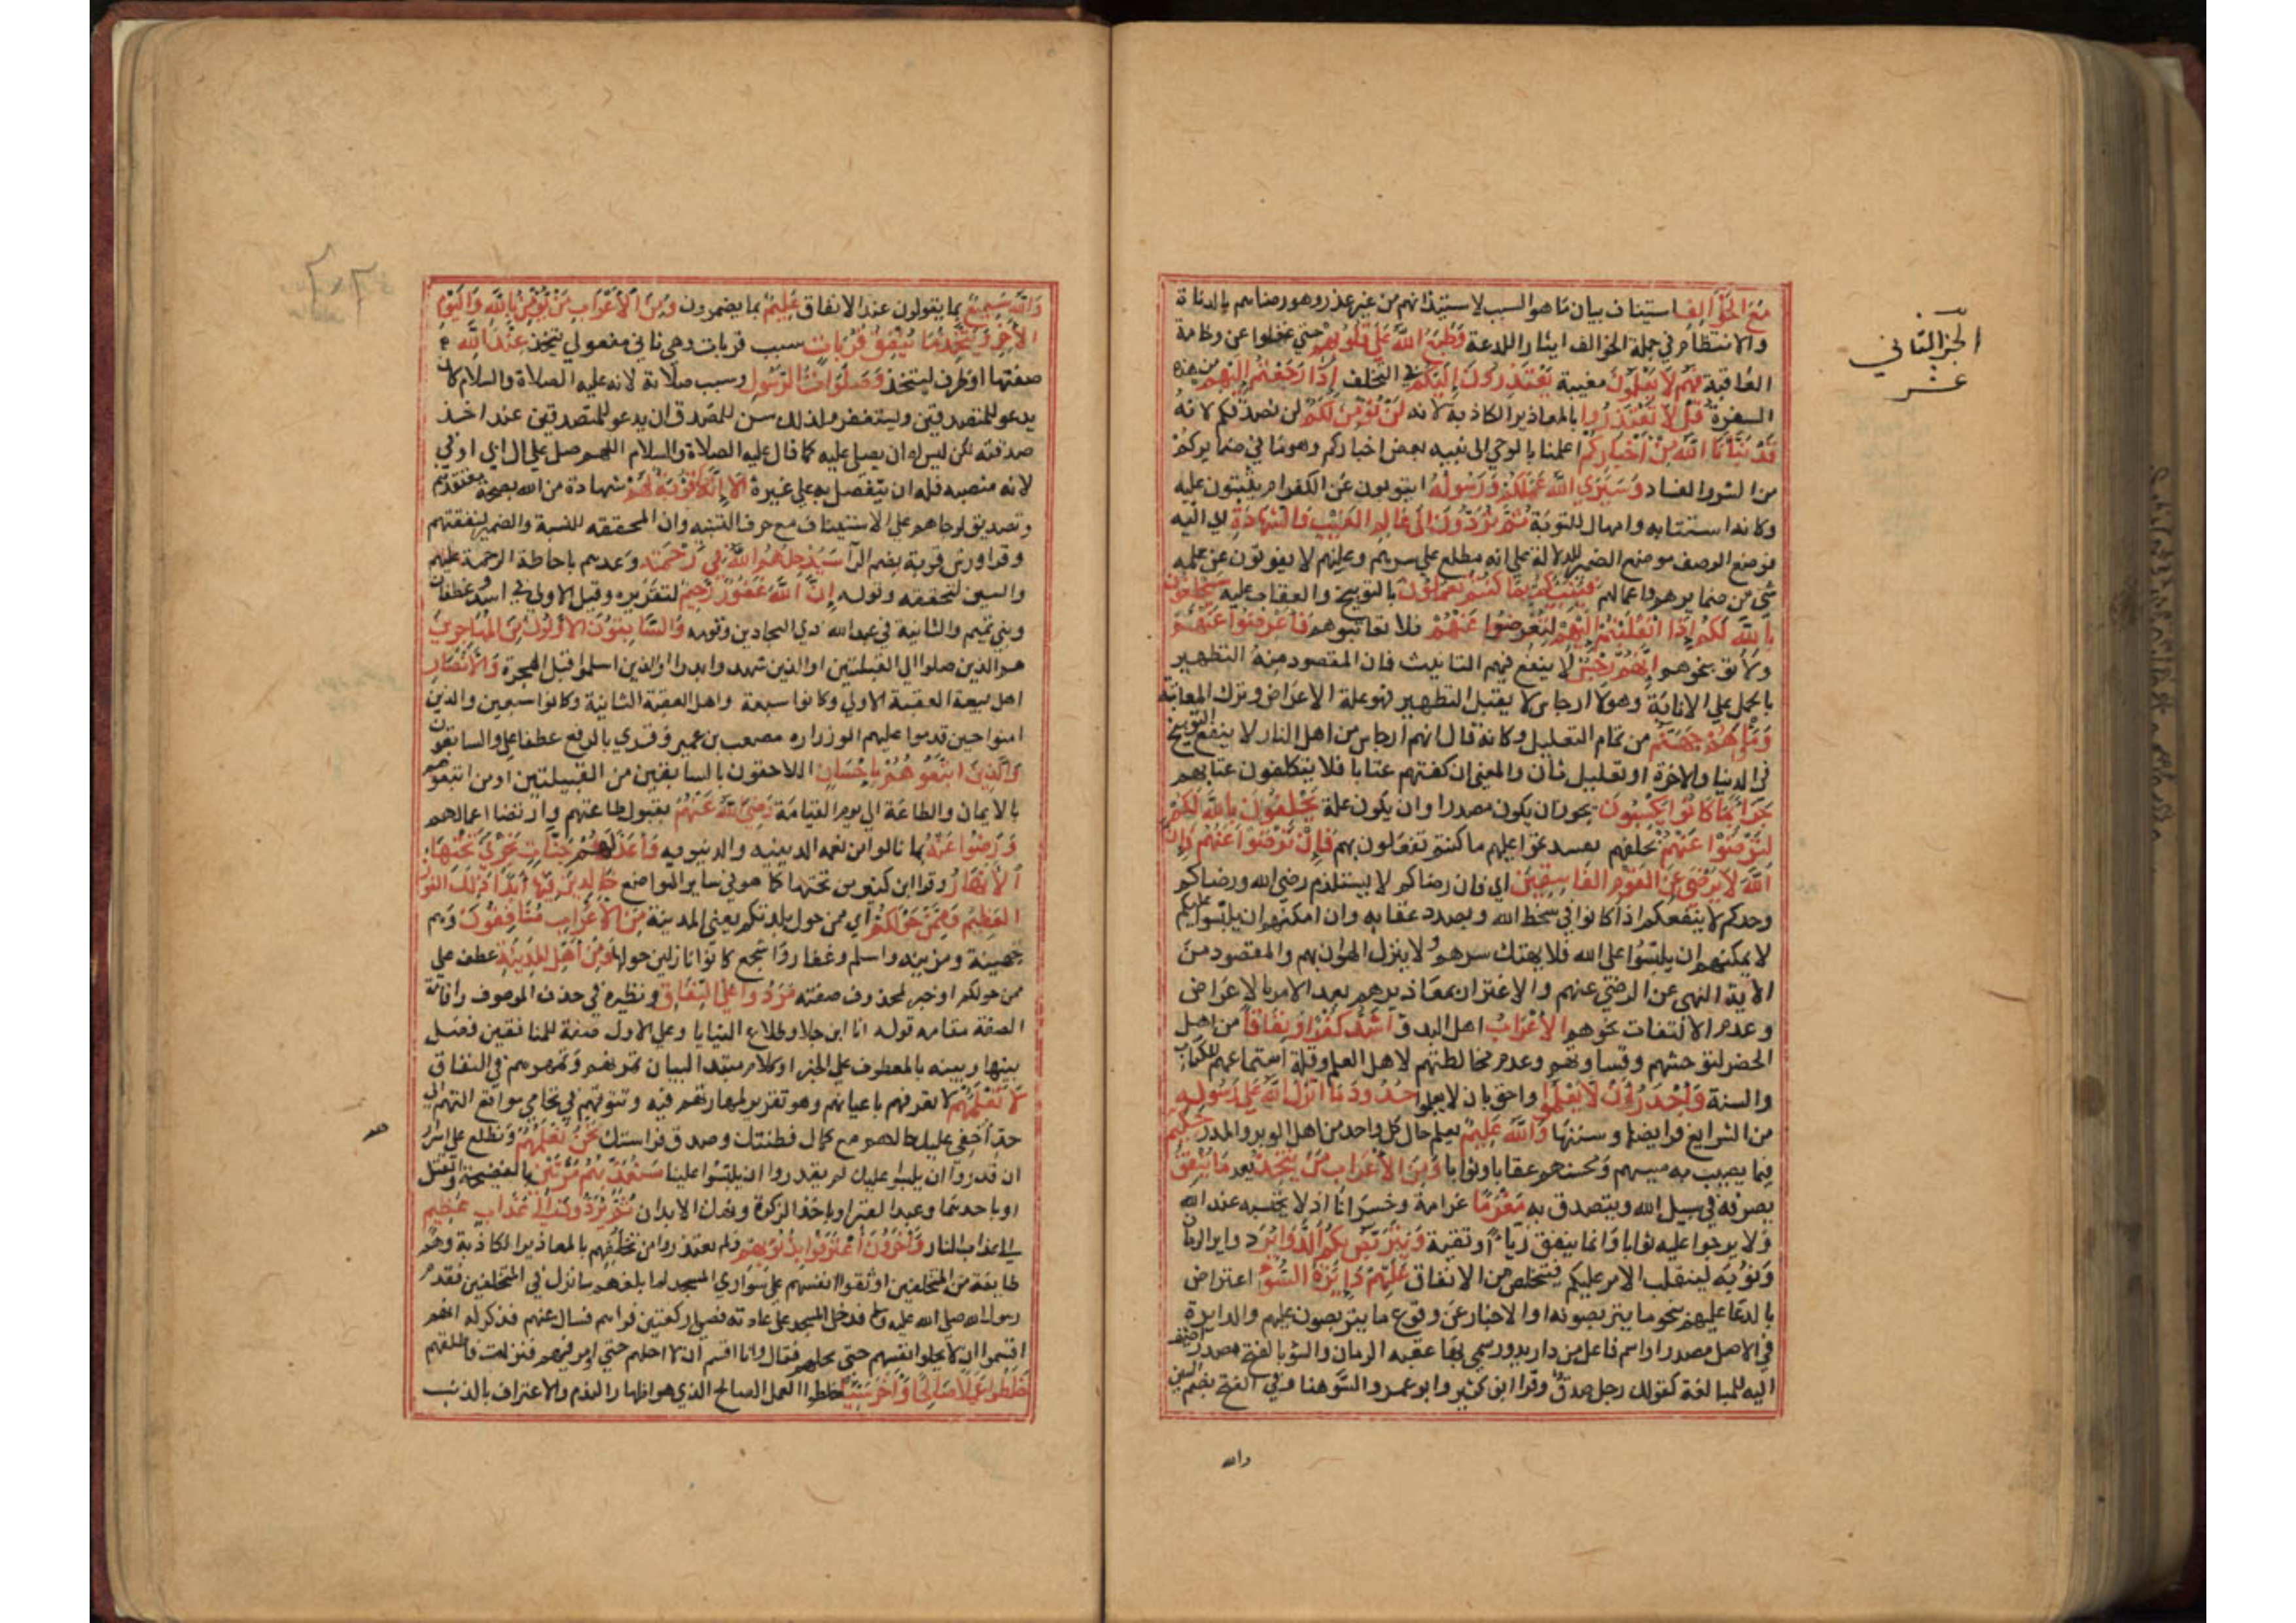 مَعَ الخَوَالِفِ استيناف بيان ما هو السبب لاستيذانهم من غير عذر وهو رضاهم بالدناة
والانتظام في جملة الخوالف ايثارا للدعة وَطَبَعَ اللَّهُ عَلَى قُلُوبِهِمْ حتي غفلوا عن وخامة
العاقبة فَهُمْ لاَ يَعْلَمُونَ مغبية يَعْتَذِرُونَ إِلَيْكُمْ في التخلف إِذَا رَجَعْتُمْ إِلَيْهِمْ من هذه
السفرة قُلْ لاَ تَعْتَذِرُوا بالمعاذير الكاذبة لانه لَنْ نُؤْمِنَ لَكُمْ لن نصدقكم لانه
قَدْ نَبَّأَنَا اللَّهُ مِنْ أَخْبَارِكُمْ اعلمنا بالوحي الى نبيه بعض اخباركم وهو ما في ضمايركم
من الشر والفساد وَسَيَرَى اللَّهُ عَمَلَكُمْ وَرَسُولُهُ اتتوبون عن الكفر ام تثبتون عليه
وكانه استتابه وامهال للتوبة ثُمَّ تُرَدُّونَ إِلَى عَالِمِ الغَيْبِ وَالشَّهَادَةِ اي اليه
فوضع الوصف موضع الضمير للدلالة على انه مطلع على سرهم وعلنهم لا يفوتون عن علمه
شي من ضمايرهم واعمالهم فَيُنَبِّئُكُمْ بِمَا كُنْتُمْ تَعْمَلُونَ بالتوبيخ والعقاب عليه سَيَحْلِفُونَ
بِاللَّهِ لَكُمْ إِذَا انْقَلَبْتُمْ إِلَيْهِمْ لِتُعْرِضُوا عَنْهُمْ فلا تعاتبوهم فَأَعْرِضُوا عَنْهُمْ
ولا توبخوهم إِنَّهُمْ رِجْسٌ لا ينفع فيهم التانيث فان المقصود منه التطهير
بالحمل علي الانابة وهولا ارجاس لا يقبل التطهير فهو علة الاعراض وترك المعاتبة
وَمَأْوَاهُمْ جَهَنَّمُ من تمام التعليل وكانه قال انهم ارجاس من اهل النار لا ينفع التوبيخ
في الدنيا والاخرة او تعليل ثان والمعنى ان كفتهم عتابا فلا يتكلفون عتابهم
جَزَاءً بِمَا كَانُوا يَكْسِبُونَ يجوز ان يكون مصدرا وان يكون علة يَحْلِفُونَ بِاللَّهِ لَكُمْ
لِتَرْضَوْا عَنْهُمْ بحلفهم فَإِنْ تَرْضَوْا عَنْهُمْ فَإِنَّ
اللَّهَ لاَ يَرْضَى عَنِ القَوْمِ الفَاسِقِينَ اي فان رضاكم لا يستلزم رضي الله ورضاكم
وحدكم لا ينفعكم اذا كانوا في سخط الله وبصدد عقابه وان امكنهم ان يلبسوا عليكم
لا يمكنهم ان يلبسوا على الله فلا يهتك سرهم ولا ينزل الهوان بهم والمقصود من
الاية النهي عن الرضي عنهم والاغترار بمعاذيرهم بعد الامر بالاعراض
وعدم الالتفات نحوهم الأَعْرَابُ اهل البدو أَشَدُّ كُفْرًا وَنِفَاقًا من اهل
الحضر لتوحشهم وقساوتهم وعدم مخالطتهم لاهل العلم وقلة استماعهم للكتاب
والسنة وَأَجْدَرُ أَنْ لاَ يَعْلَمُوا واحق بان لا يعلموا حُدُودَ مَا أَنْزَلَ اللَّهُ عَلَى رَسُولِهِ
من الشرايع فرايضها وسننها وَاللَّهُ عَلِيمٌ يعلم حال كل واحد من اهل الوبر والمدر حَكِيمٌ
فيما يصيب به مسيهم ومحسنهم عقابا وثوابا وَمِنَ الأَعْرَابِ مَنْ يَتَّخِذُ يعد مَا يُنْفِقُ
يصرفه في سبيل الله ويتصدق به مَغْرَمًا غرامة وخسرانا اذ لا يحتسبه عند الله
ولا يرجوا عليه ثوابا وانما ينفق رياء او تقية وَيَتَرَبَّصُ بِكُمُ الدَّوَائِرَ دواير الزمان
ونوبه لينقلب الامر عليكم فيتخلص من الانفاق عَلَيْهِمْ دَائِرَةُ السَّوْءِ اعتراض
بالدعا عليهم بنحو ما يتربصونه او الاخبار عن وقوع ما يتربصون عليهم والدايرة
في الاصل مصدر او اسم فاعل من دار يدور سمي بها عقبه الزمان والسو بالفتح مصدر اضيف
اليه للمبالغة كقولك رجل صدق وقرا ابن كثير وابو عمرو السو هنا وفي الفتح بضم السين
والله
الجزء الثاني
عشر
وَاللَّهُ سَمِيعٌ بما يقولون عند الانفاق عَلِيمٌ بما يضمرون وَمِنَ الأَعْرَابِ مَنْ يُؤْمِنُ بِاللَّهِ وَاليَوْمِ
الآخِرِ وَيَتَّخِذُ مَا يُنْفِقُ قُرُبَاتٍ سبب قربات وهي ثاني مفعولي يتخذ عِنْدَ اللَّهِ
صفتها او ظرف ليتخذ وَصَلَوَاتِ الرَّسُولِ وسبب صلاته لانه عليه الصلاة والسلام كان
يدعو للمتصدقين ويستغفر ولذلك سن للمصدق ان يدعو للمتصدقين عند اخذ
صدقته لكن ليس له ان يصلى عليه كما قال عليه الصلاة والسلام اللهم صل علي ال ابي اوفي
لانه منصبه فله ان يتفضل به علي غيره أَلاَ إِنَّهَا قُرْبَةٌ لَهُمْ شهادة من الله بصحة معتقدهم
وتصديق لرجاهم على الاستيناف مع حرف التنبيه وان المحققه للنسبة والضمير لنفقتهم
وقرا ورش قربة بضم الرا سَيُدْخِلُهُمُ اللَّهُ فِي رَحْمَتِهِ وعدهم باحاطة الرحمة عليهم
والسين لتحققه وقوله إِنَّ اللَّهَ غَفُورٌ رَحِيمٌ لتقريره وقيل الاولي في اسد وغطفان
وبني تميم والثانية في عبد الله ذي البجادين وقومه وَالسَّابِقُونَ الأَوَّلُونَ مِنَ المُهَاجِرِينَ
هم الذين صلوا الي القبلتين او الذين شهدوا بدرا او الذين اسلموا قبل الهجرة وَالأَنْصَارِ
اهل بيعة العقبة الاولي وكانوا سبعة واهل العقبة الثانية وكانوا سبعين والذين
امنوا حين قدموا عليهم ابو زراره مصعب بن عمير وقري بالرفع عطفا علي والسابقون
وَالَّذِينَ اتَّبَعُوهُمْ بِإِحْسَانٍ اللاحقون بالسابقين من القبيلتين او من اتبعوهم
بالايمان والطاعة الي يوم القيامة رَضِيَ اللَّهُ عَنْهُمْ بقبول طاعتهم وارتضا اعمالهم
وَرَضُوا عَنْهُ بما نالوا من نعمه الدينيه والدنيويه وَأَعَدَّ لَهُمْ جَنَّاتٍ تَجْرِي تَحْتَهَا
الأَنْهَارُ وقرا ابن كثير من تحتها كما هو في ساير المواضع خَالِدِينَ فِيهَا أَبَدًا ذَلِكَ الفَوْزُ
العَظِيمُ وَمِمَّنْ حَوْلَكُمْ اي ممن حول بلدتكم يعنى المدينة مِنَ الأَعْرَابِ مُنَافِقُونَ وهم
جهينة ومزينه واسلم وغفار واشجع كانوا نازلين حولها وَمِنْ أَهْلِ المَدِينَةِ عطف علي
ممن حولكم او خبر لمحذوف صفته مَرَدُوا عَلَى النِّفَاقِ ونظيره في حذف الموصوف واقامة
الصفة مقامه قوله انا ابن جلا وطلاع الثنايا وعلي الاول صفة للمنافقين فصل
بينها وبينه بالمعطوف علي الخبر او كلام مبتدا لبيان تمرنهم وتمهرهم في النفاق
لاَ تَعْلَمُهُمْ لا تعرفهم باعيانهم وهو تقرير لمهارتهم فيه وتنوقهم في تحامي مواقع التهم الي
حد اخفي عليك حالهم مع كمال فطنتك وصدق فراستك نَحْنُ نَعْلَمُهُمْ ونطلع على اسرارهم
ان قدروا ان يلبسوا عليك لم يقدروا ان يلبسوا علينا سَنُعَذِّبُهُمْ مَرَّتَيْنِ بالفضيحة والقتل
او باحدهما وعذاب القبر او باخذ الزكوة ونهك الابدان ثُمَّ يُرَدُّونَ إِلَى عَذَابٍ عَظِيمٍ
الي عذاب النار وَآخَرُونَ اعْتَرَفُوا بِذُنُوبِهِمْ ولم يعتذروا من تخلفهم بالمعاذير الكاذبة وهم
طايفة من المتخلفين اوثقوا انفسهم على سواري المسجد لما بلغهم ما نزل في المتخلفين فقدم
رسول الله صلى الله عليه وسلم فدخل المسجد على عادته فصلى ركعتين فراهم فسال عنهم فذكر له انهم
اقسموا ان لا يحلوا انفسهم حتى يحلهم فقال وانا اقسم ان لا احلهم حتي اومر فيهم فنزلت فاطلقهم
خَلَطُوا عَمَلاً صَالِحًا وَآخَرَ سَيِّئًا خلطوا العمل الصالح الذي هو اظهار الندم والاعتراف بالذنب